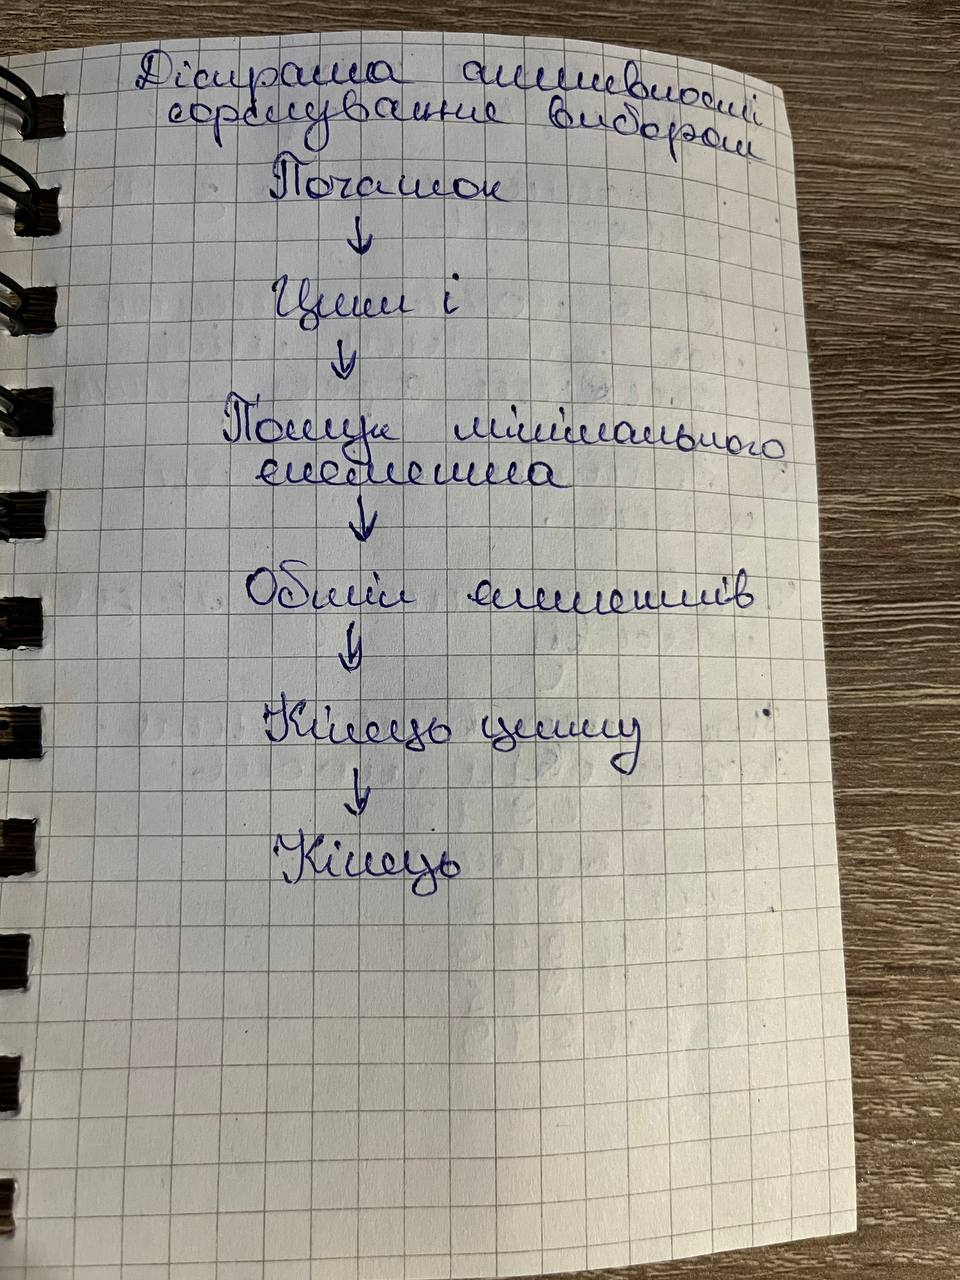 Діаграма активності
сортування вибором
Початок
↓
Цикл і
↓
Пошук мінімального
елемента
↓
Обмін елементів
↓
Кінець циклу
↓
Кінець